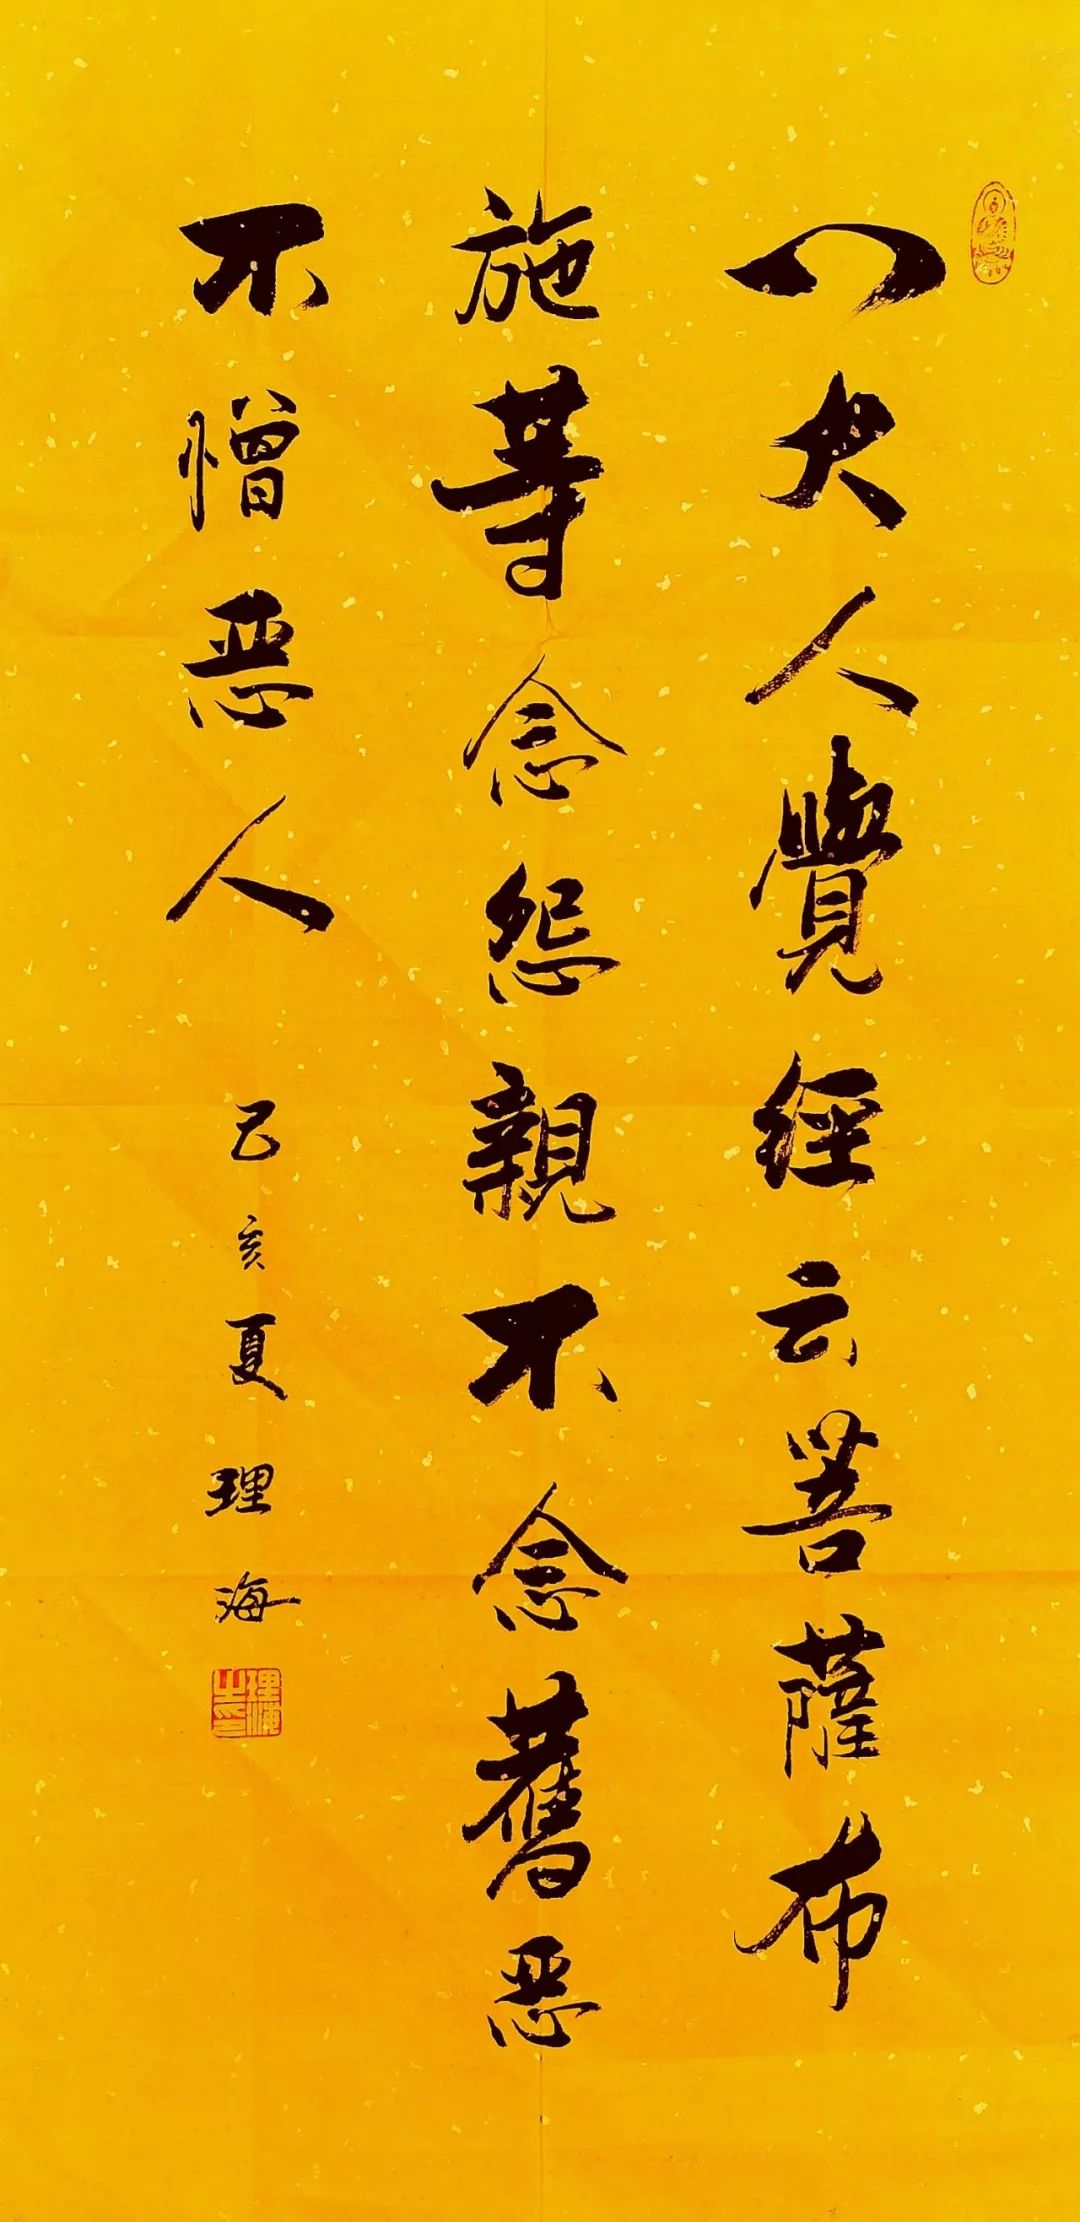 八大人覺經云菩薩布
施等念怨親不念舊恶
不憎恶人
己亥夏理海
理海之印